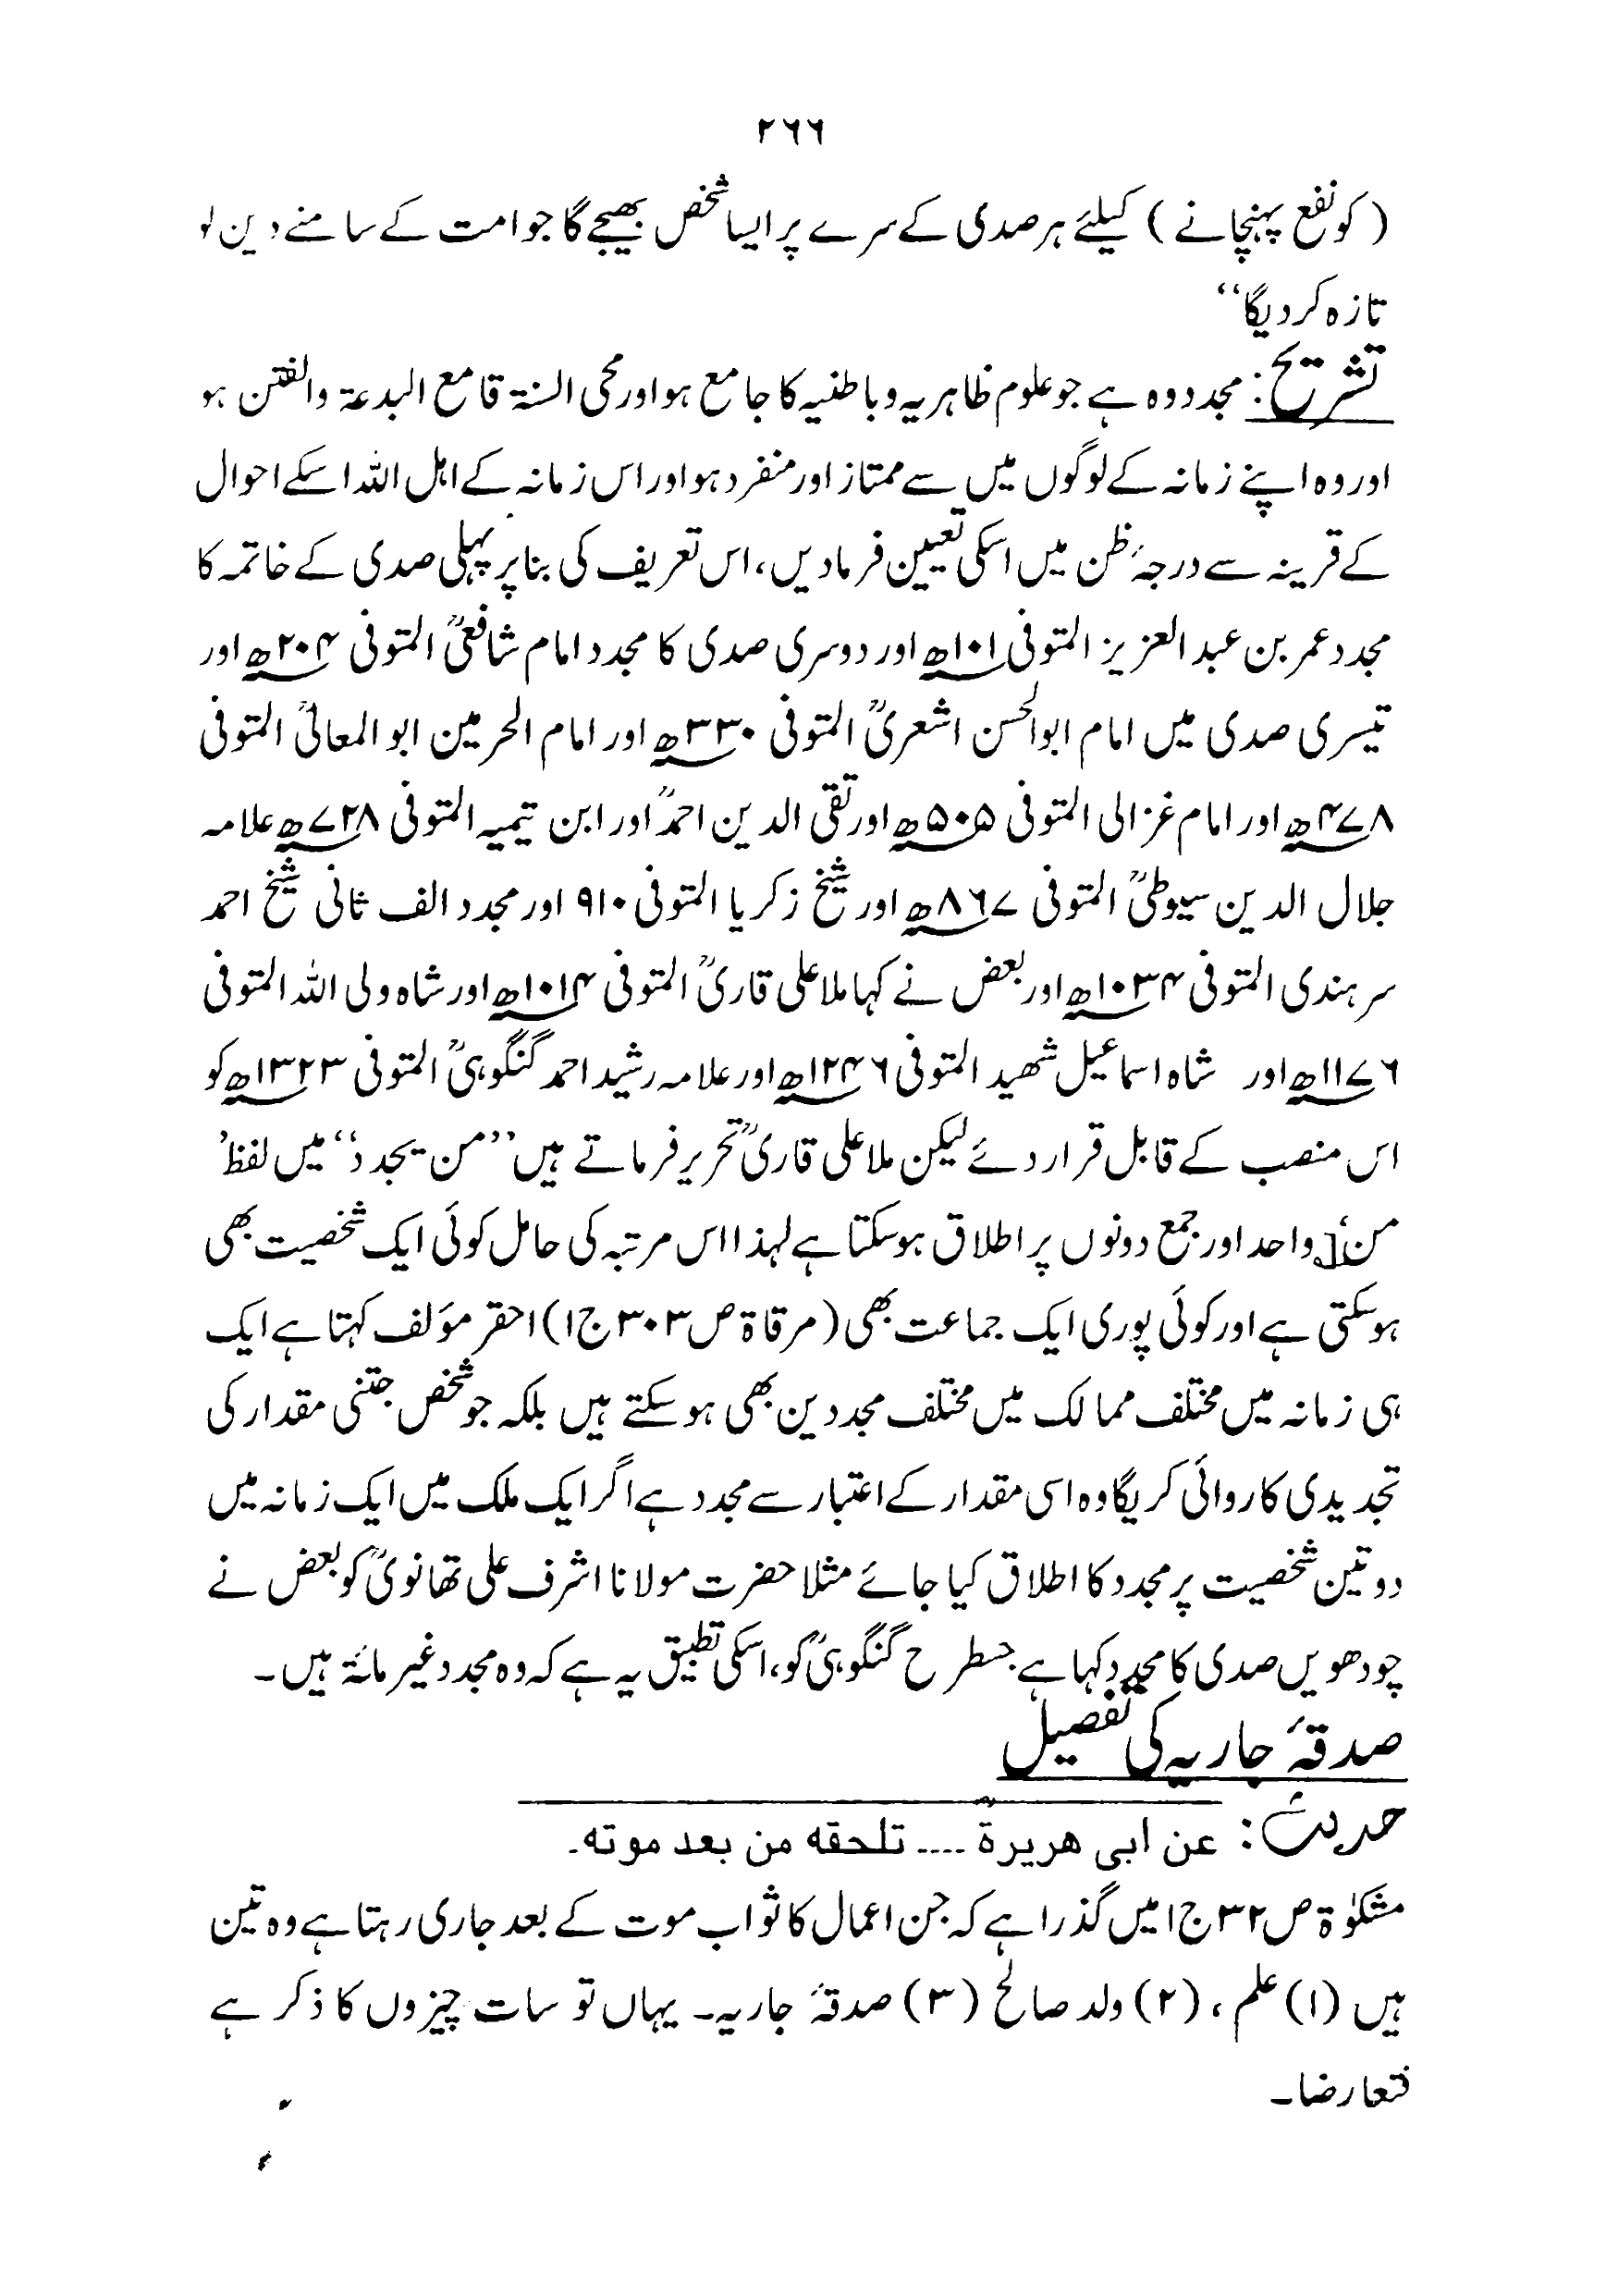 ۲۶۶
( کو نفع پہنچانے ) کیلئے ہر صدی کے سرے پر ایسا شخص بھیجے گا جو امت کے سامنے دین
تازہ کر دیگا‘‘
تشریح: مجدد وہ ہے جو علوم ظاہریہ وباطنیہ کا جامع ہو اور محی السنۃ قامع البدعۃ والفتن ہو
اور وہ اپنے زمانہ کے لوگوں میں سے ممتاز اور منفرد ہو اور اس زمانہ کے اہل اللہ اسکے احوال
کے قرینہ سے درجۂ ظن میں اسکی تعیین فرمادیں، اس تعریف کی بنا پر پہلی صدی کے خاتمہ کا
مجدد عمر بن عبد العزیز المتوفی ۱۰۱ھ اور دوسری صدی کا مجدد امام شافعیؒ المتوفی ۲۰۴ھ اور
تیسری صدی میں امام ابوالحسن اشعریؒ المتوفی ۳۳۰ھ اور امام الحرمین ابو المعالیؒ المتوفی
۴۷۸ھ اور امام غزالی المتوفی ۵۰۵ھ اور تقی الدین احمدؒ اور ابن تیمیہ المتوفی ۷۲۸ھ علامہ
جلال الدین سیوطیؒ المتوفی ۸۶۷ھ اور شیخ زکریا المتوفی ۹۱۰ اور مجدد الف ثانی شیخ احمد
سرہندی المتوفی ۱۰۳۴ھ اور بعض نے کہا ملا علی قاریؒ المتوفی ۱۰۱۴ھ اور شاہ ولی اللہ المتوفی
۱۱۷۶ھ اور شاہ اسماعیل شھید المتوفی ۱۲۴۶ھ اور علامہ رشید احمد گنگوہیؒ المتوفی ۱۳۲۳ھ کو
اس منصب کے قابل قرار دئے لیکن ملا علی قاریؒ تحریر فرماتے ہیں ’’من یجدد‘‘ میں لفظ’
من‘ واحد اور جمع دونوں پر اطلاق ہوسکتا ہے لہذا اس مرتبہ کی حامل کوئی ایک شخصیت بھی
ہوسکتی ہے اور کوئی پوری ایک جماعت بھی (مرقاۃ ص۳۰۳ ج۱) احقر مؤلف کہتا ہے ایک
ہی زمانہ میں مختلف ممالک میں مختلف مجددین بھی ہوسکتے ہیں بلکہ جو شخص جتنی مقدار کی
تجدیدی کاروائی کریگا وہ اسی مقدار کے اعتبار سے مجدد ہے اگر ایک ملک میں ایک زمانہ میں
دو تین شخصیت پر مجدد کا اطلاق کیا جائے مثلا حضرت مولانا اشرف علی تھانویؒ کو بعض نے
چودھویں صدی کا مجدد کہا ہے جسطرح گنگوہیؒ کو، اسکی تطبیق یہ ہے کہ وہ مجدد غیر مائۃ ہیں۔
صدقۂ جاریہ کی تفصیل
حدیث: عن ابی هریرةؓ .... تلحقه من بعد موته۔
مشکوٰۃ ص۳۲ ج۱ میں گذرا ہے کہ جن اعمال کا ثواب موت کے بعد جاری رہتا ہے وہ تین
ہیں (۱) علم، (۲) ولد صالح (۳) صدقۂ جاریہ۔ یہاں تو سات چیزوں کا ذکر ہے
فتعارضا۔